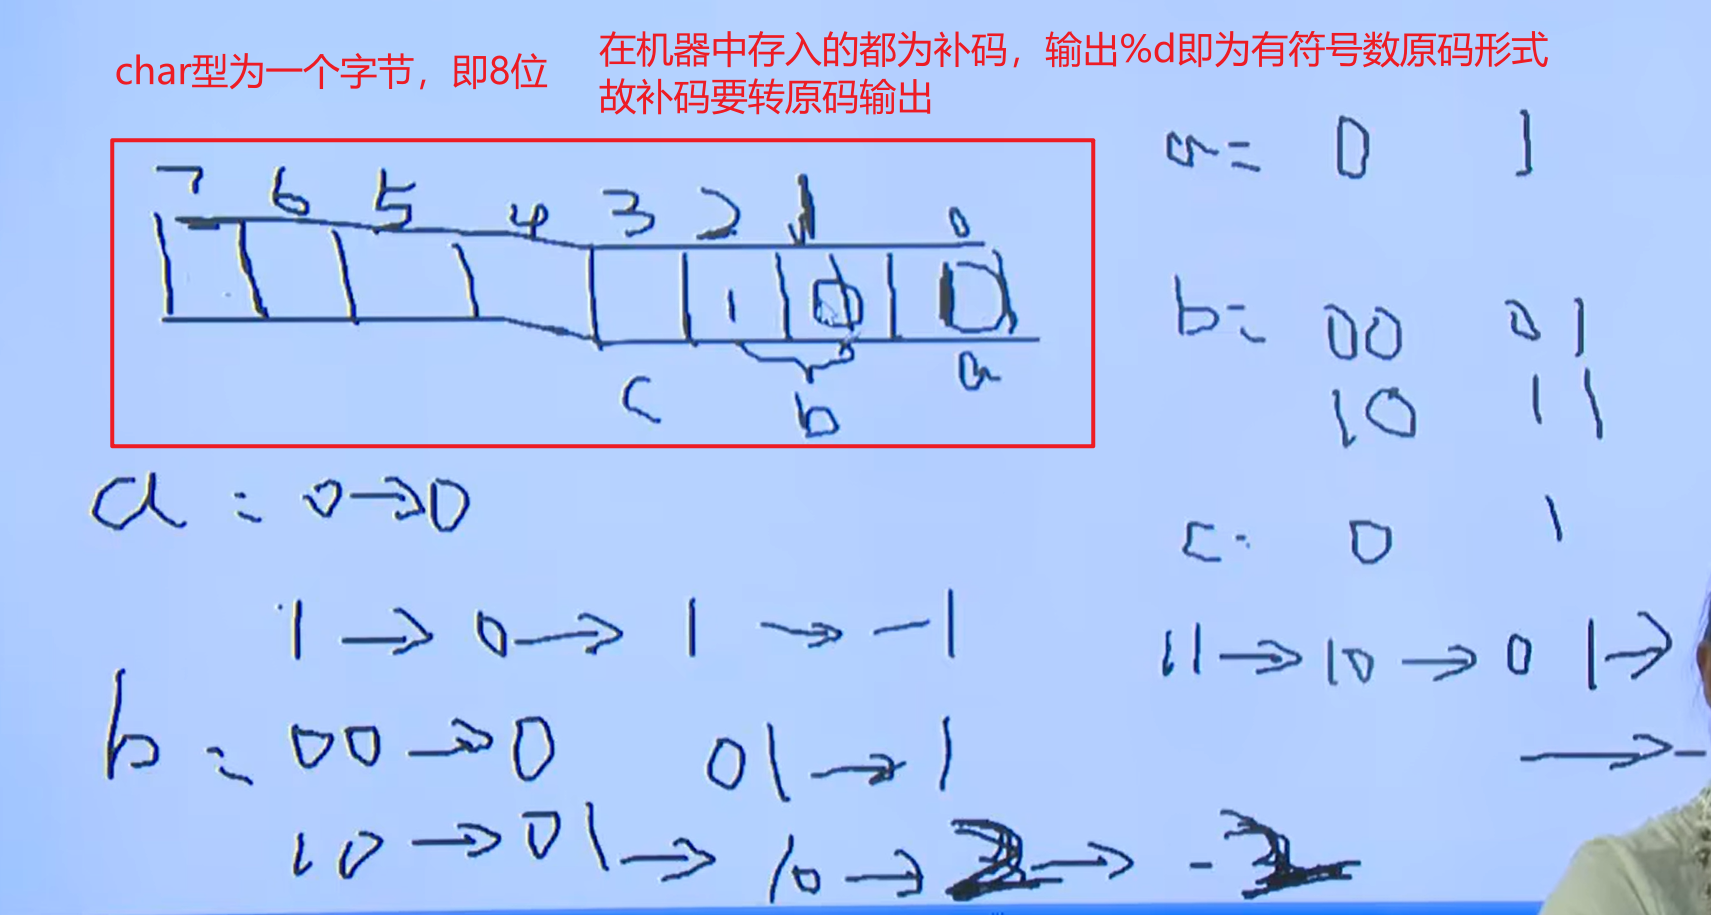 char型为一个字节，即8位
在机器中存入的都为补码，输出%d即为有符号数原码形式
故补码要转原码输出
7 6 5 4 3 2 1 0
1 0 0
c b a
a= 0 1
b= 00 01
10 11
c= 0 1
a = 0→0
1 → 0 → 1 → -1
11 → 10 → 01 →
b = 00 → 0 01 → 1
→ -
10 → 01 → 10 → 2 → -2